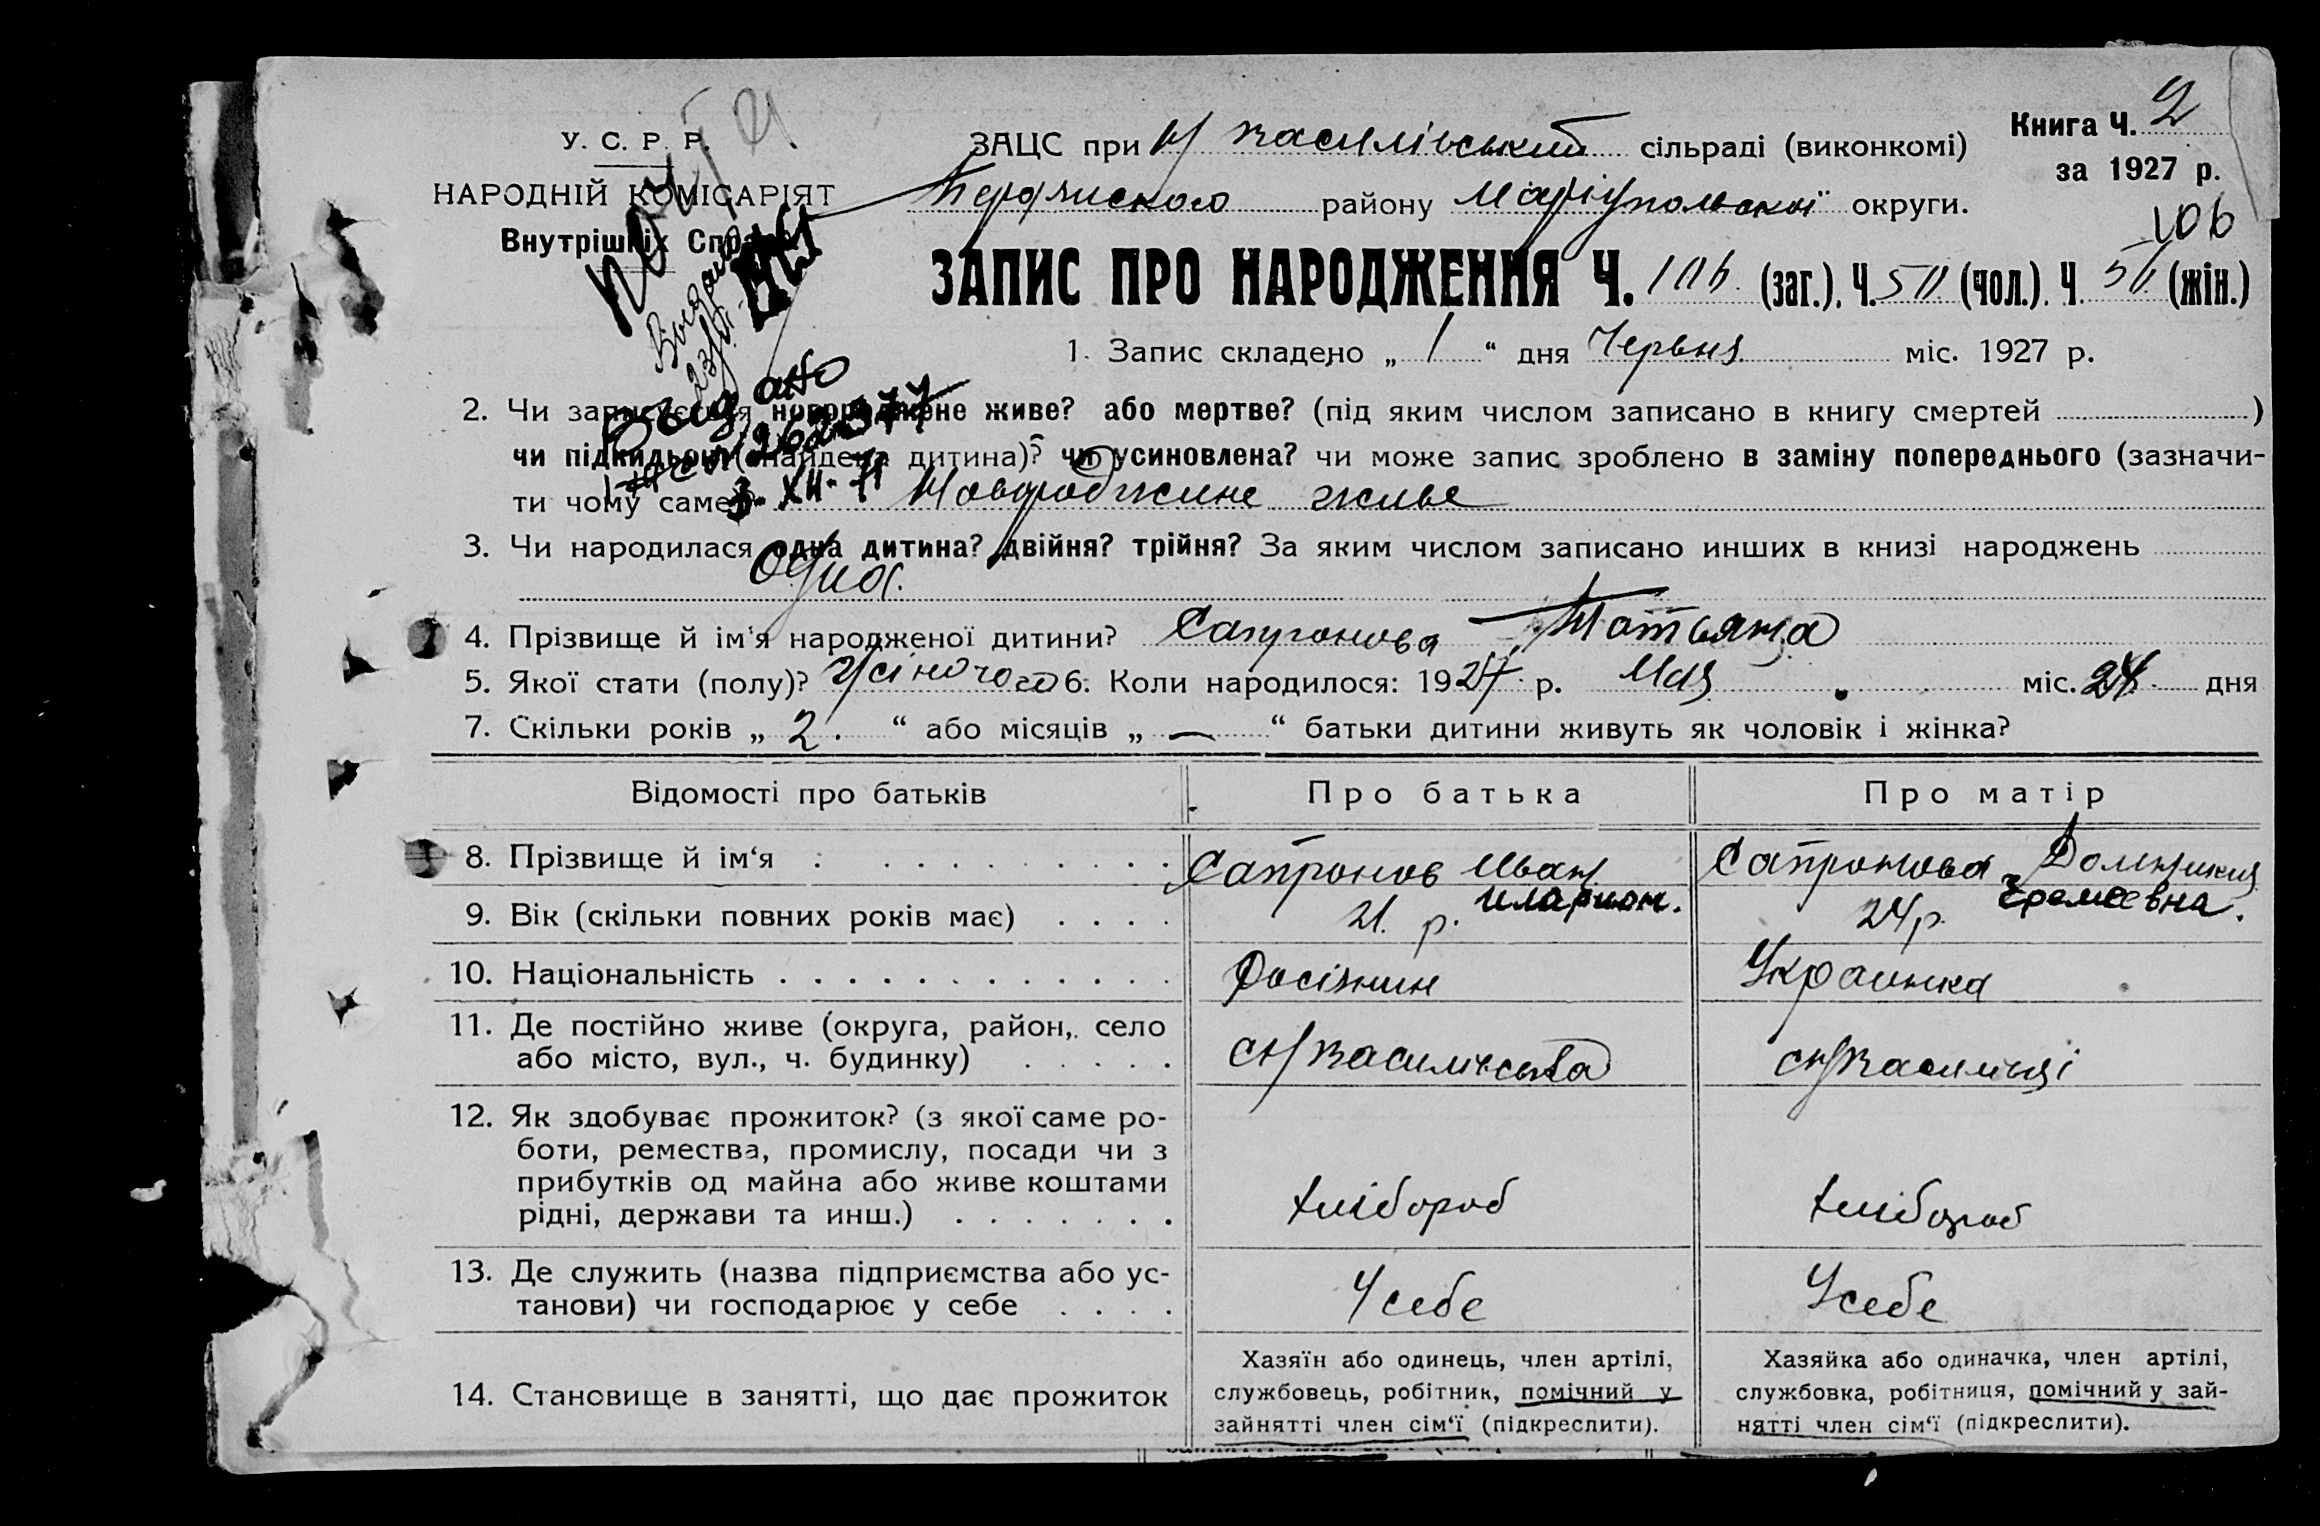 У. С. Р. Р.
НАРОДНІЙ КОМІСАРІЯТ
Внутрішніх Справ
ЗАЦС при Н Василівський сільраді (виконкомі)
Бердянского району Маріупольскої округи.
Книга Ч. 2
за 1927 р.
106
ЗАПИС ПРО НАРОДЖЕННЯ Ч. 106 (заг.), Ч. 50 (чол.). Ч. 56 (жін.)
1. Запис складено „ 1 “ дня Червня міс. 1927 р.
Выдано
3. XII. 71
2. Чи записується новороджене живе? або мертве? (під яким числом записано в книгу смертей )
чи підкидьок (знайдена дитина)? чи усиновлена? чи може запис зроблено в заміну попереднього (зазначи-
ти чому саме) Новороджине живе
3. Чи народилася одна дитина? двійня? трійня? За яким числом записано инших в книзі народжень
Одна.
4. Прізвище й ім'я народженої дитини? Сапронова Татьяна
5. Якої стати (полу)? Жіночого 6. Коли народилося: 1927 р. Мая міс. 24 дня
7. Скільки років „ 2. “ або місяців „ — “ батьки дитини живуть як чоловік і жінка?
Відомості про батьків Про батька Про матір
8. Прізвище й ім‘я Сапронов Иван Иларион. Сапронова Домникия Еремеевна.
9. Вік (скільки повних років має) 21. р. 24 р.
10. Національність Росіянин Украинка
11. Де постійно живе (округа, район, село
або місто, вул., ч. будинку) сН Василівська сН Василівці
12. Як здобуває прожиток? (з якої саме ро-
боти, ремества, промислу, посади чи з
прибутків од майна або живе коштами
рідні, держави та инш.) хлібороб хлібороб
13. Де служить (назва підприємства або ус-
танови) чи господарює у себе У себе У себе
14. Становище в занятті, що дає прожиток
Хазяїн або одинець, член артілі,
службовець, робітник, помічний у
зайнятті член сім‘ї (підкреслити).
Хазяйка або одиначка, член артілі,
службовка, робітниця, помічний у зай-
нятті член сім‘ї (підкреслити).